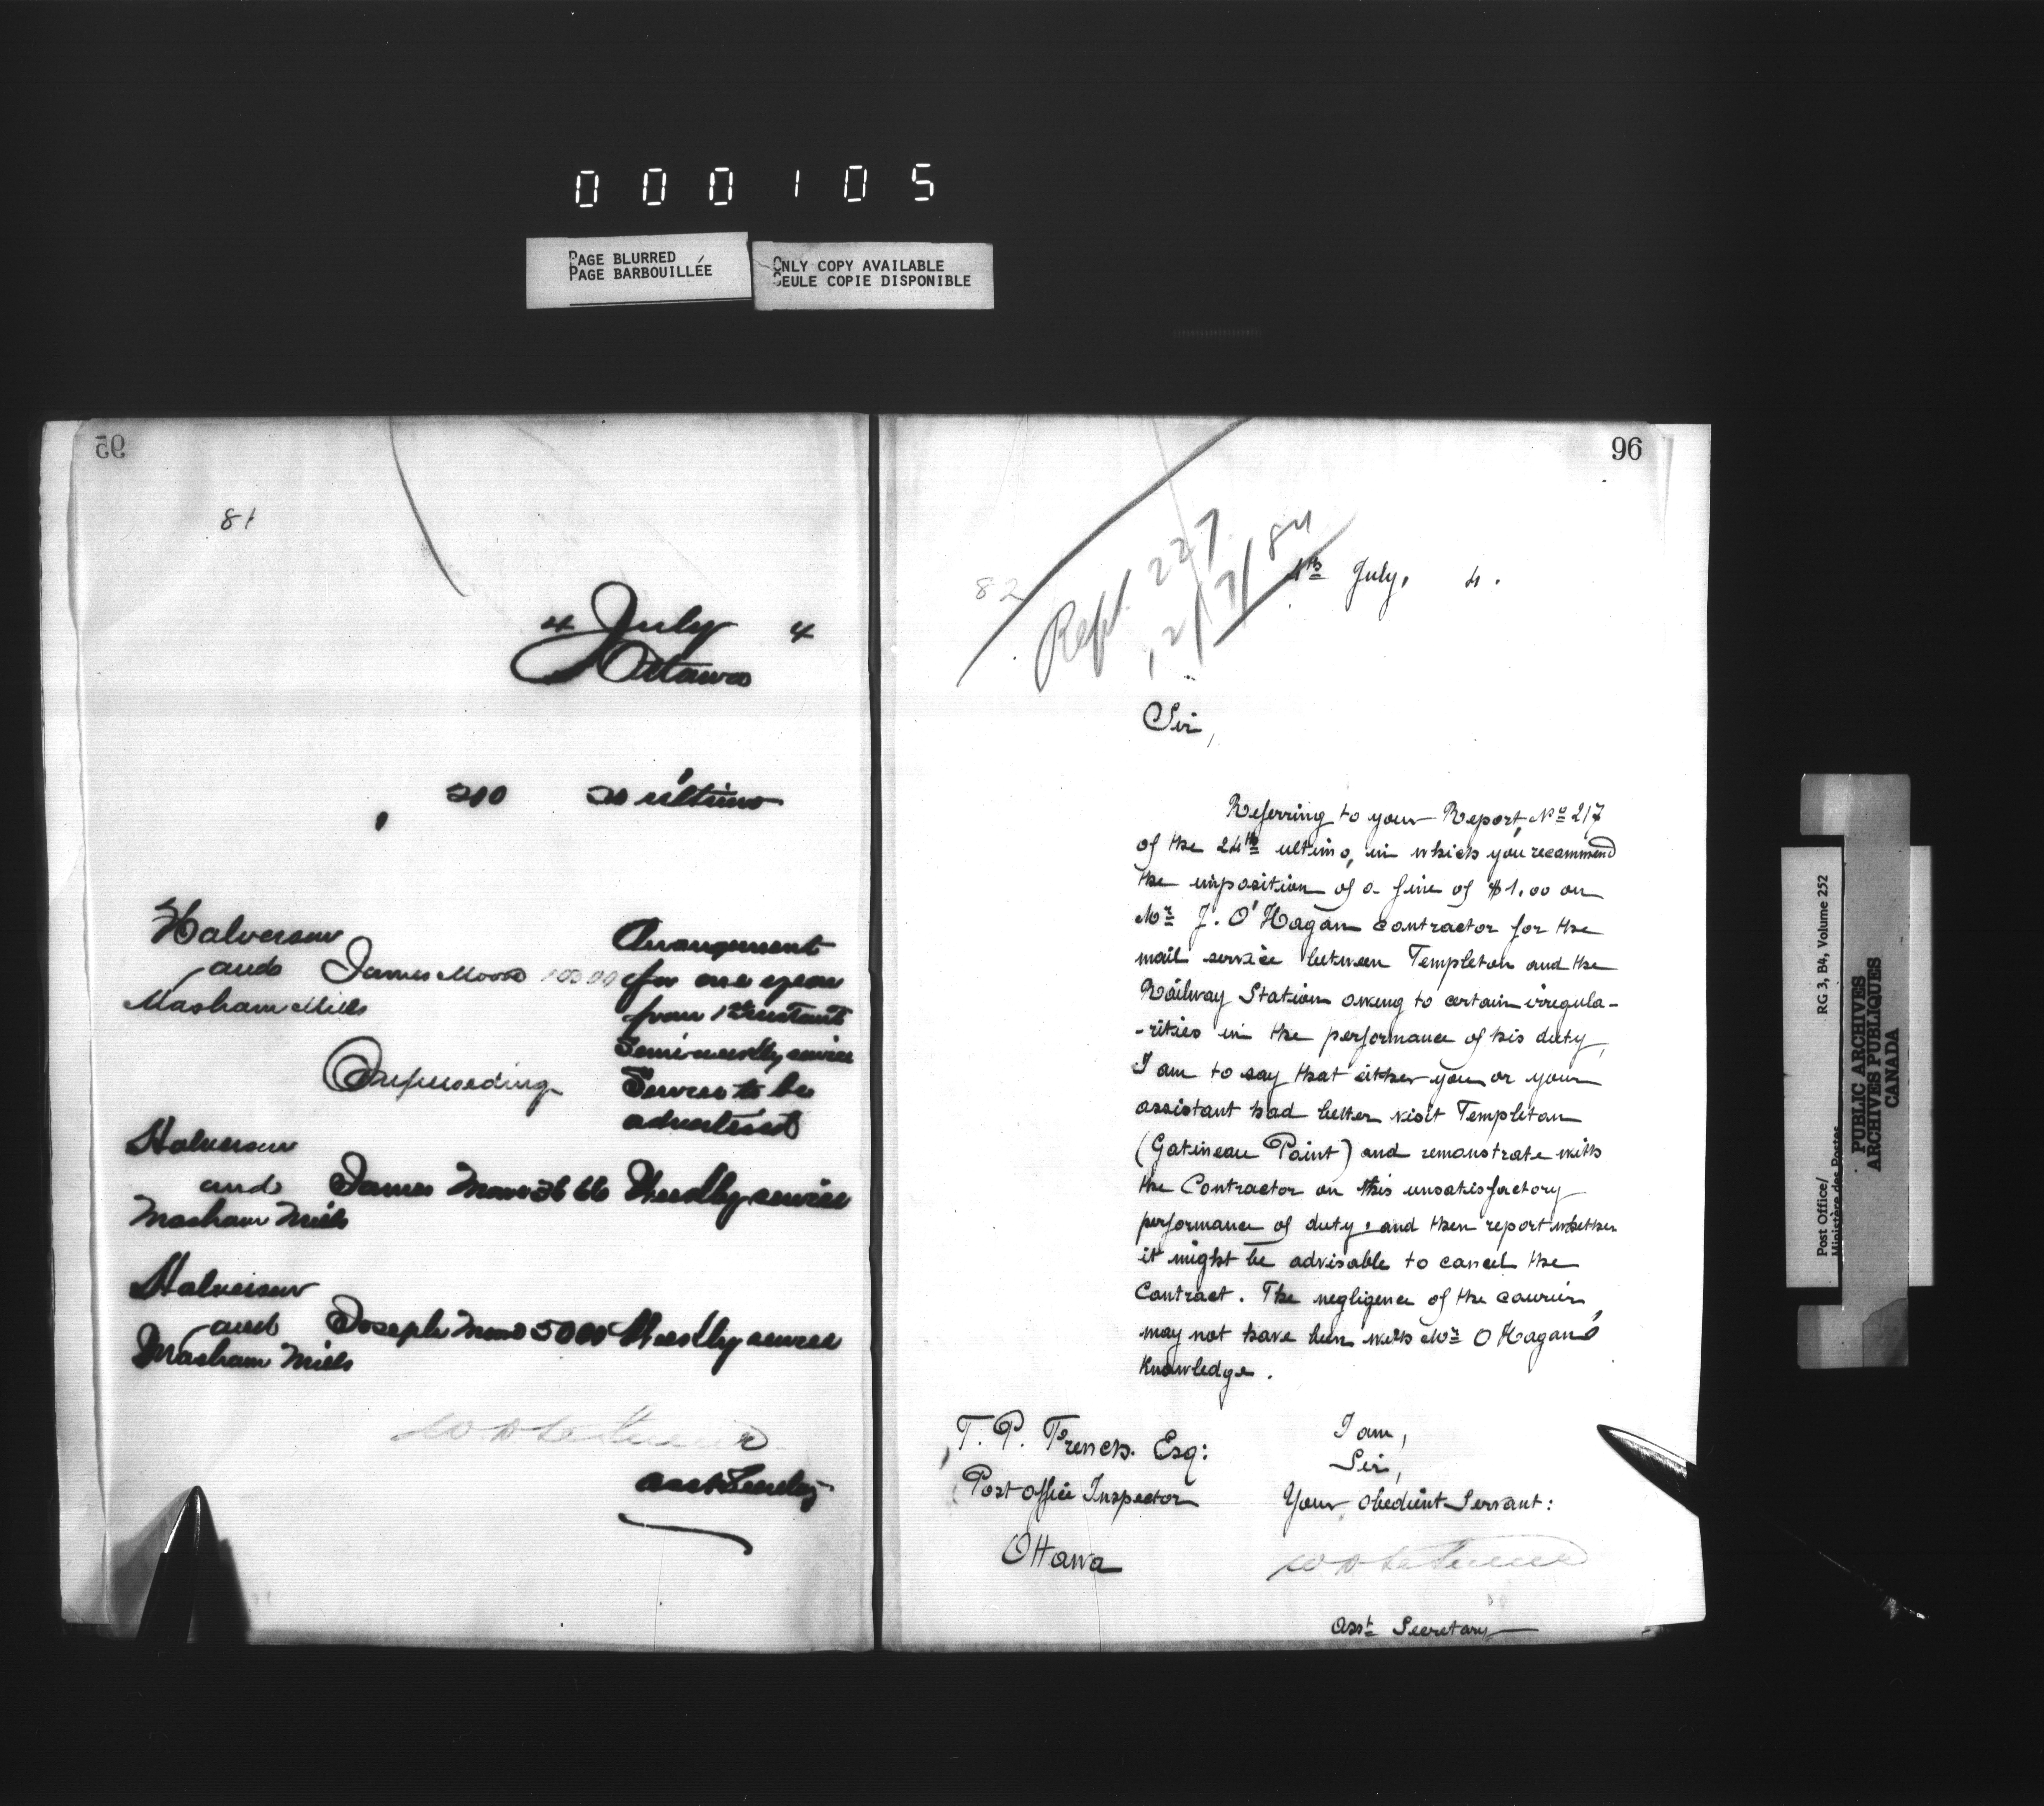 000105
PAGE BLURRED
PAGE BARBOUILLÉE
ONLY COPY AVAILABLE
SEULE COPIE DISPONIBLE
95
81
4 July 4
Ottawa
210 20 ultimo
Halverson
and James Moore 100 00
Masham Mills
Arrangement
for one year
from 1st instant
Semi-weekly service
Service to be
advertised
Superseding
Halverson
and James Moore 36 66 Weekly service
Masham Mills
Halverson
and Joseph Moore 50 00 Weekly service
Masham Mills
Asst Secretary
96
82
Rept. 227
12/7/84
4th July, 4.
Sir,
Referring to your Report, No 217
of the 24th ultimo, in which you recommend
the imposition of a fine of $1.00 on
Mr J. O'Hagan contractor for the
mail service between Templeton and the
Railway Station owing to certain irregula-
-rities in the performance of his duty,
I am to say that either you or your
assistant had better visit Templeton
(Gatineau Point) and remonstrate with
the Contractor on this unsatisfactory
performance of duty, and then report whether
it might be advisable to cancel the
Contract. The negligence of the courier,
may not have been with Mr O'Hagan's
Knowledge.
I am,
Sir,
Your obedient Servant:
T. P. French. Esq:
Post office Inspector
Ottawa
Asst Secretary
Post Office/
Ministère des Postes
RG 3, B4, Volume 252
PUBLIC ARCHIVES
ARCHIVES PUBLIQUES
CANADA